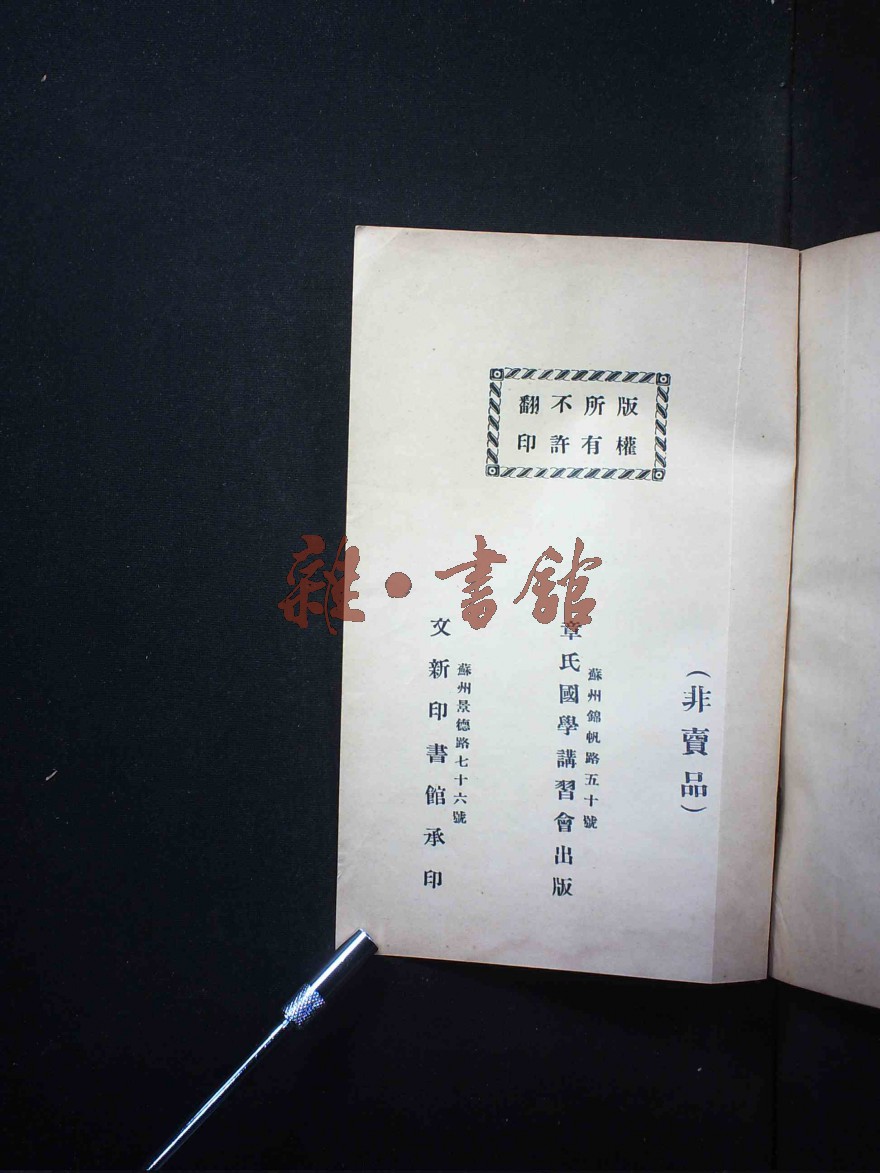 版權
所有
不許
翻印
（非賣品）
蘇州錦帆路五十號
章氏國學講習會出版
蘇州景德路七十六號
文新印書館承印
雜·書館